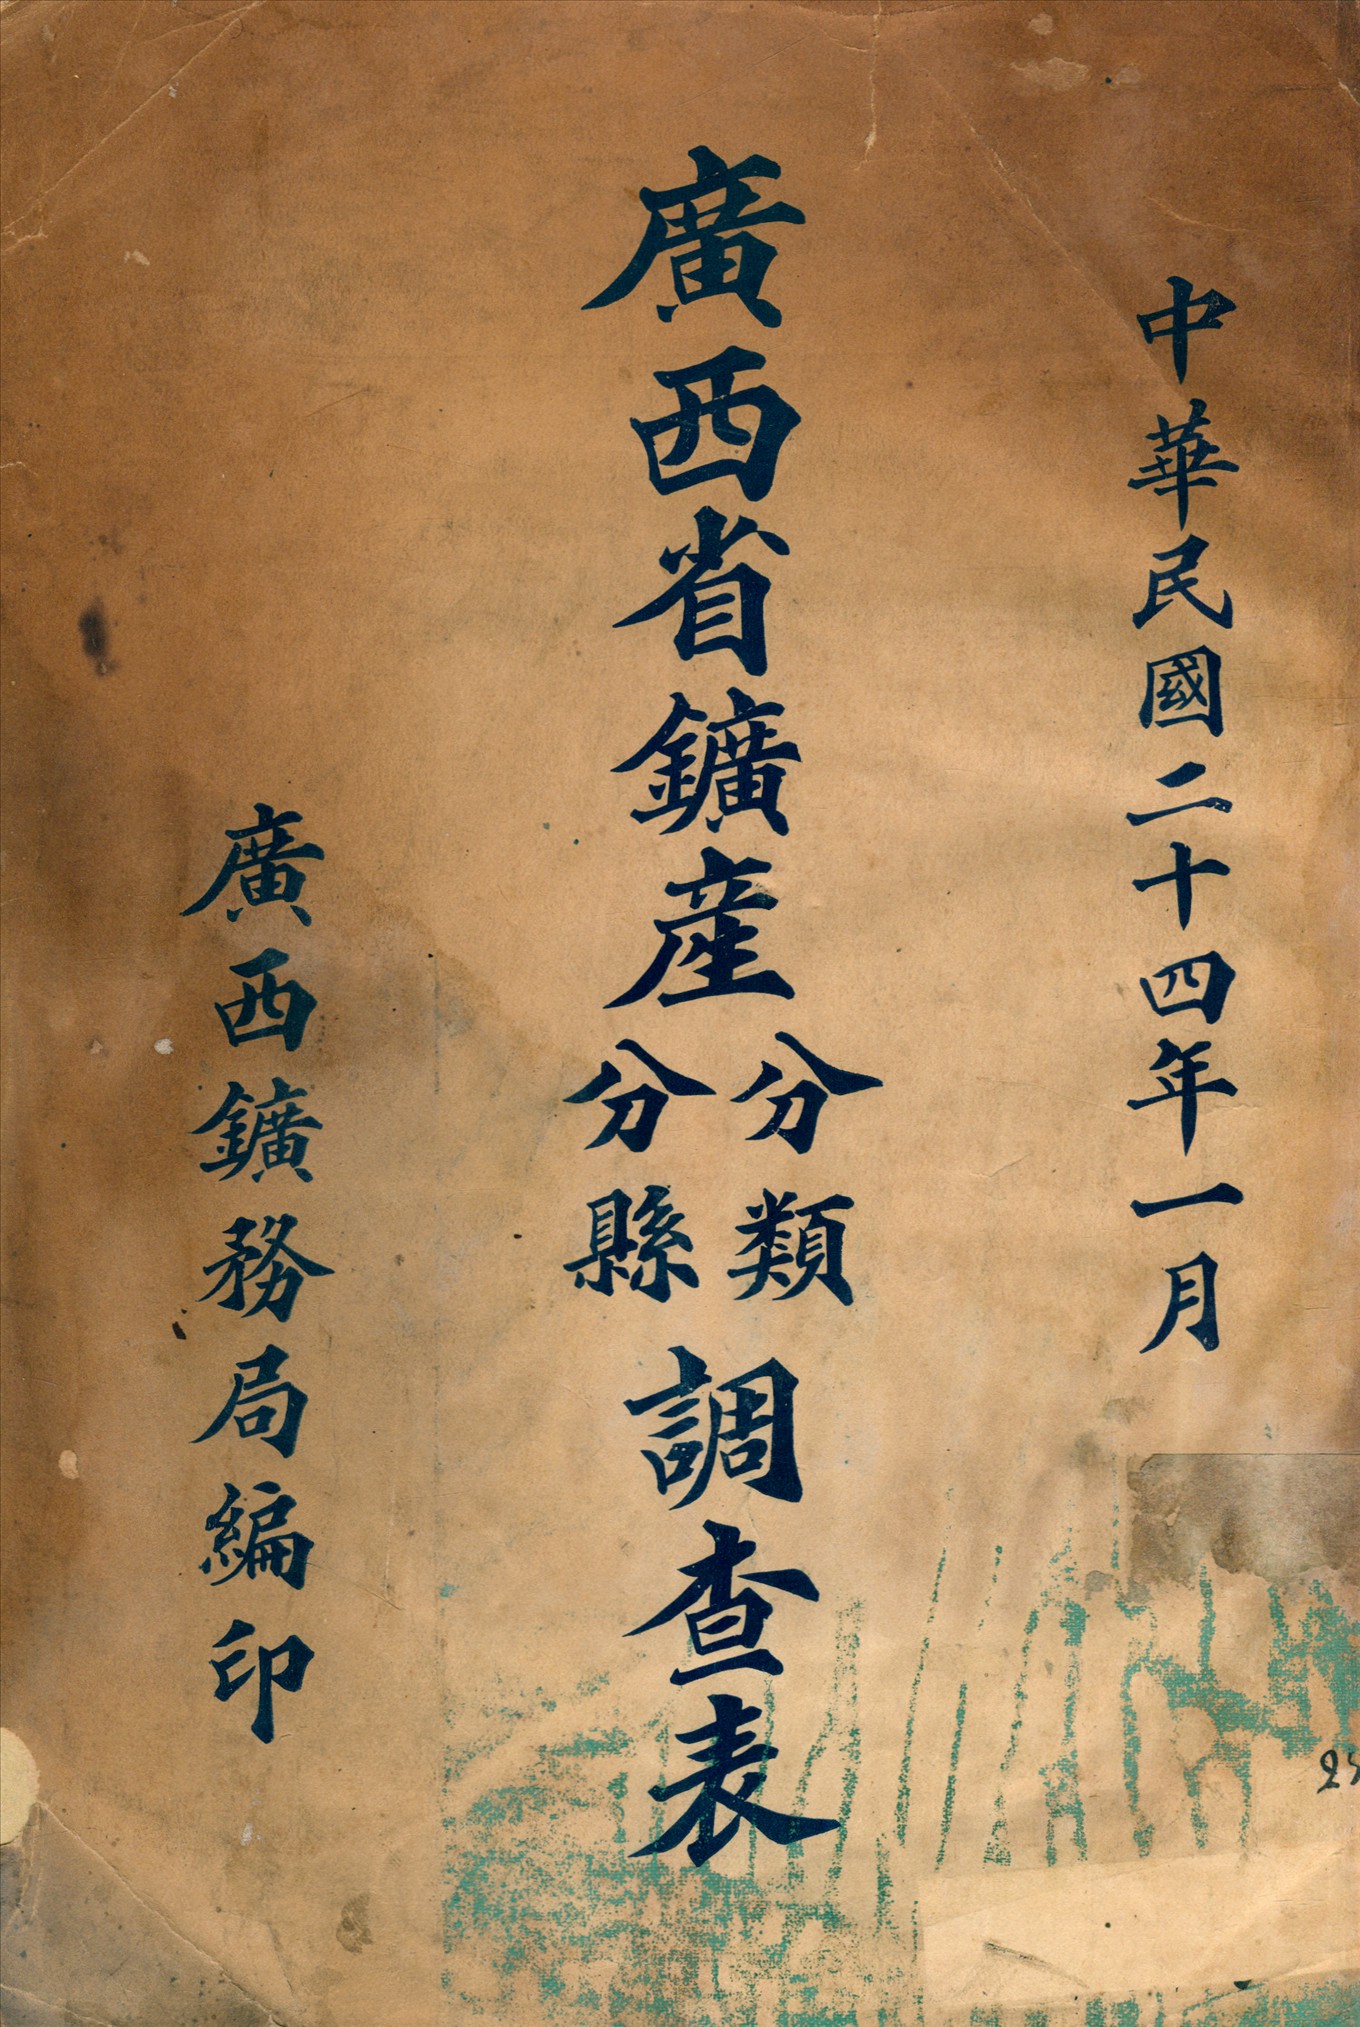 中華民國二十四年一月
廣西省鑛産分類分縣調查表
廣西鑛務局編印